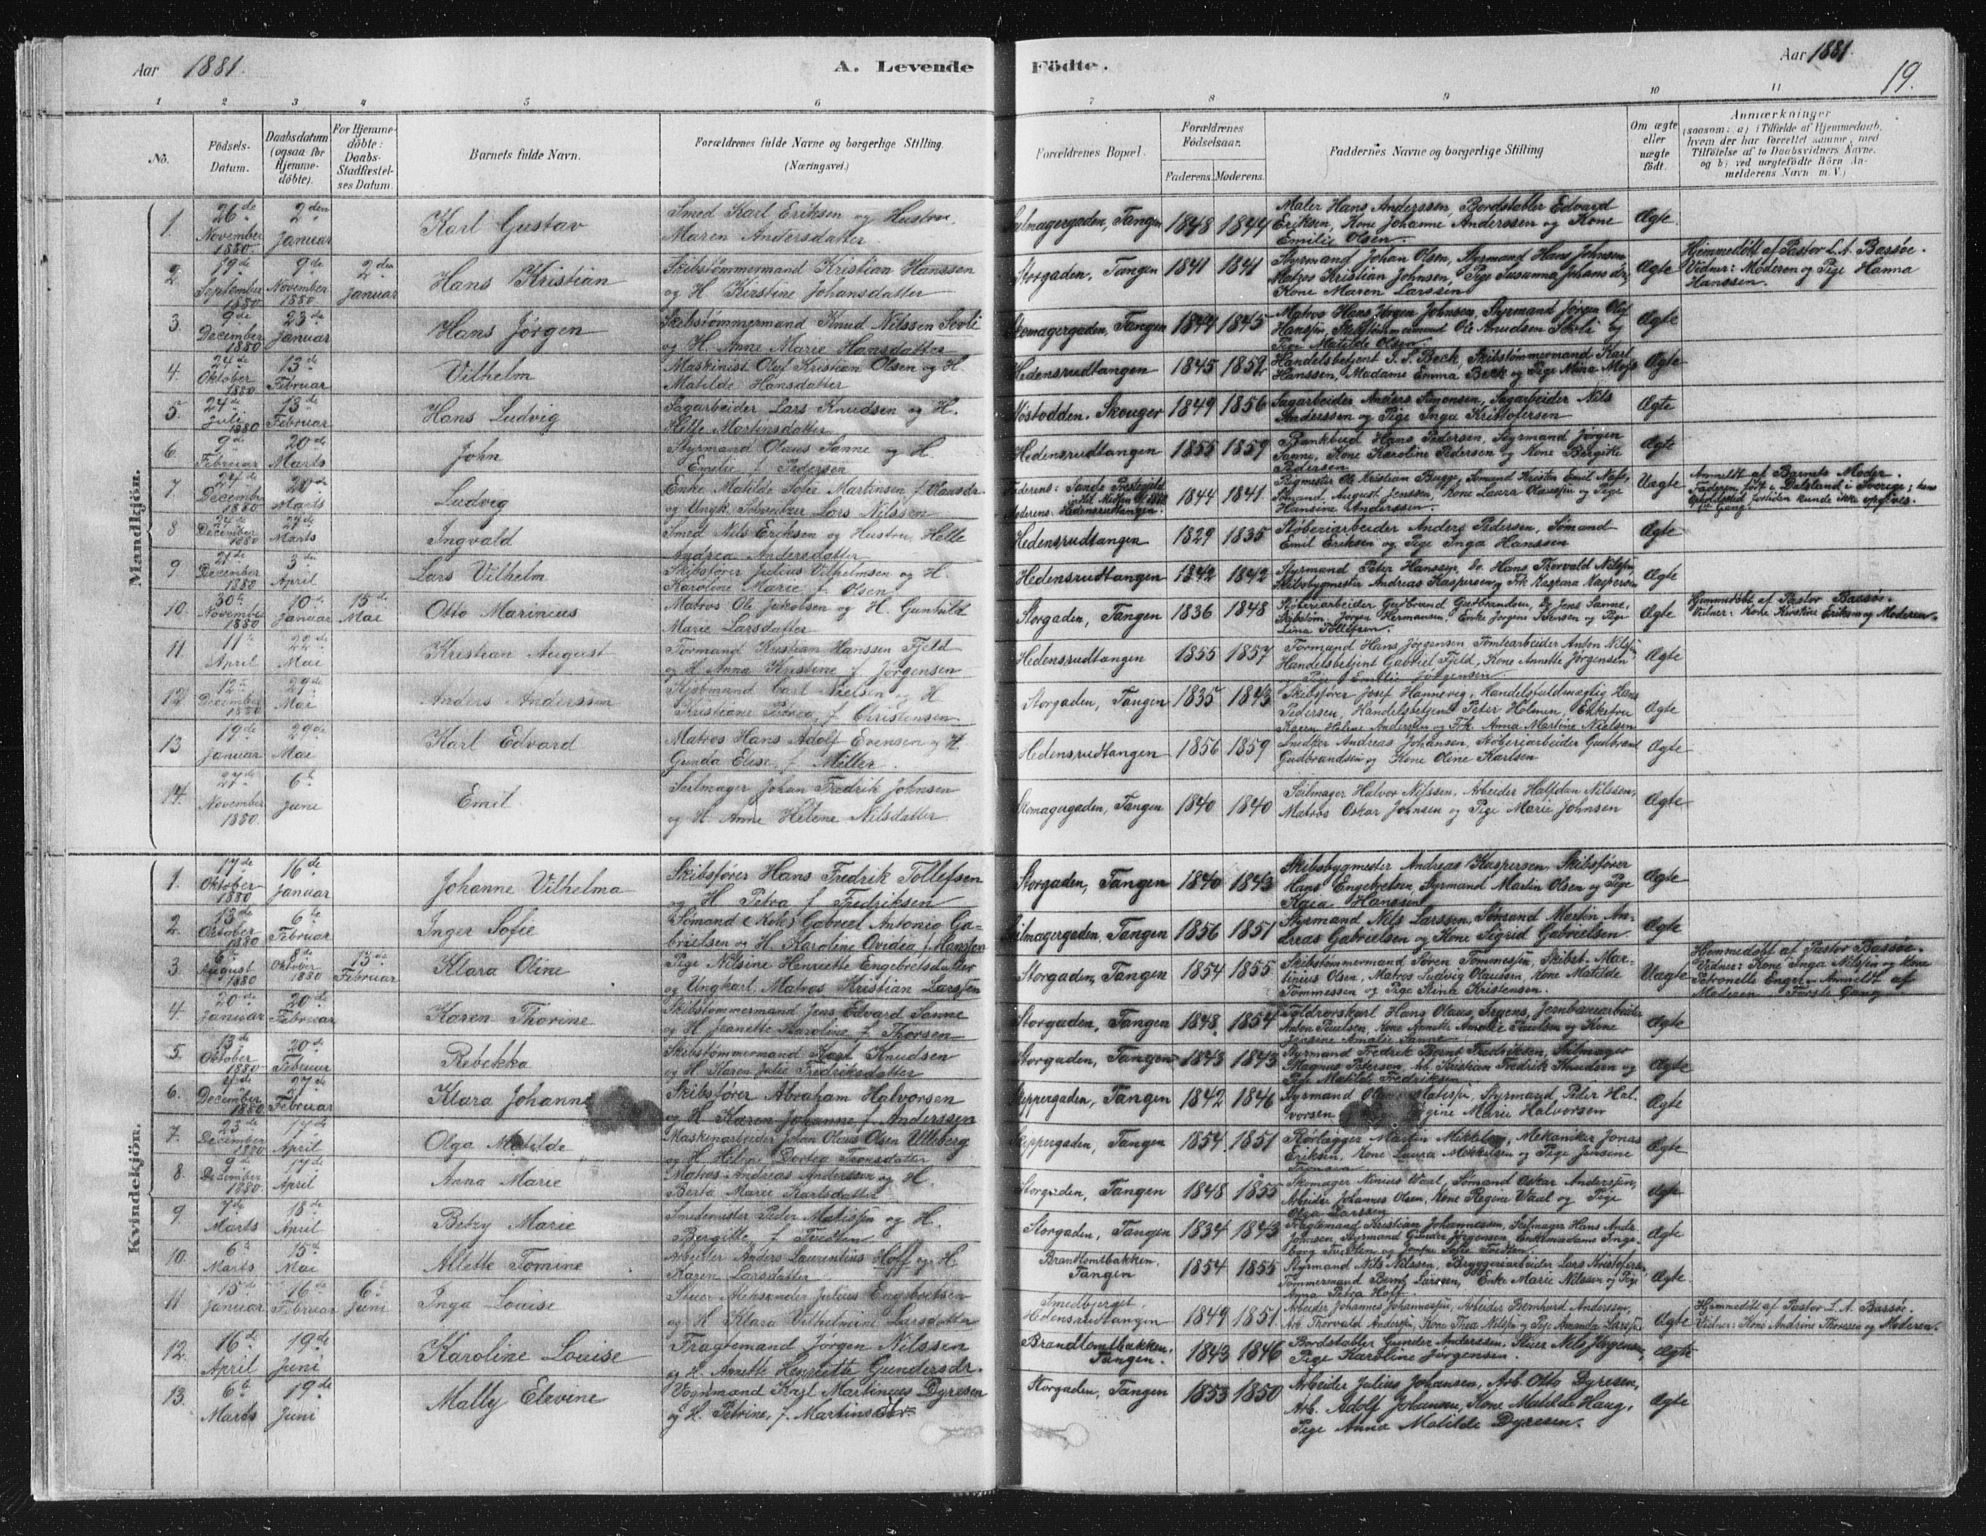 Aar 1881.
A. Levende Födte.
Aar 1881.
19.
1 2 3 4 5 6 7 8 9 10 11
No.
Födsels-Datum.
Daabsdatum (ogsaa for Hjemme-döbte).
For Hjemme-döbte: Daabs-Stadfæstel-ses Datum.
Barnets fulde Navn.
Forældrenes fulde Navne og borgerlige Stilling. (Næringsvei.)
Forældrenes Bopæl.
Forældrenes Födselsaar.
Faderens. Moderens.
Faddernes Navne og borgerlige Stilling
Om ægte eller uægte födt.
Anmærkninger
(saasom: a) i Tilfælde af Hjemmedaab,
hvem der har forrettet samme, med
Tilföielse af to Daabsvidners Navne,
og b) ved uægtefödte Börn An-
melderens Navn m. V.)
Mandkjön.
1. 26de November 1880 2den Januar Karl Gustav
Smed Karl Eriksen og Hustru
Maren Andersdatter
Seilmagergaden, Tangen 1848 1844
Maler Hans Anderssen, Bordstabler Edvard
Eriksen, Kone Johanne Anderssen og Kone
Emilie Olsen. Ægte
2. 19de September 1880 9de November 1880 2den Januar Hans Kristian
Skibstømmermand Kristian Hanssen
og H Kirstine Johansdatter
Storgaden, Tangen 1841 1841
Styrmand Johan Olsen, Styrmand Hans Johnsen,
Matros Kristian Johnsen, Pige Susanna
Kone Maren Larssen Ægte
Hjemmedöbt af Pastor L. A. Bassøe.
Vidner: Moderen og Pige Hanna
Hanssen.
3. 9de December 1880 23de Januar Hans Jørgen
Skibstømmermand Knud Nilssen
og H. Anne Marie Hansdatter
Skomagergaden, Tangen 1844 1845
Matros Hans Jørgen Johnsen, Styrmand Jørgen Olaf
Pige Matilde Olsen. Ægte
4. 24de Oktober 1880 13de Februar Vilhelm
Maskinist Oluf Kristian Olsen og H
Matilde Hansdatter
Hedensrudtangen 1845 1852
Handelsbetjent Beck, Skibstømmermand Karl
Hanssen, Madame Emma Beck og Pige Mina Ægte
5. 24de Juli 1880 13de Februar Hans Ludvig
Sagarbeider Lars Knudsen og H.
Helle Martinsdatter
Skouger 1849 1856
Sagarbeider Anders Simonsen, Sagarbeider Nils
Anderssen og Pige Inga Kristofersen Ægte
6. 9de Februar 20de Marts John
Styrmand Olaus Sanne og H
Emilie f. Pedersen
Hedensrudtangen 1855 1859
Bankbud Hans Pedersen, Styrmand Jørgen
Sanne, Kone Karoline Pedersen og Kone Bergitte
Pedersen Ægte
7 24de December 1880 20de Marts Ludvig
Enke Matilde Sofie Martinsen f. Olausdr
og Ungk. Lars Nilssen
Moderens: Hedensrudtangen. 1844 1841
Ole Kristian Bugge, Sømand Kristen Emil
Sømand August Jenssen, Kone Laura og Pige
Hansine Anderssen. Uægte
Anmeldt af Barnets Moder.
Faderen født i Dalsland i Sverige; hans
kunde ikke opgives.
8 24de December 1880 27de Marts Ingvald
Smed Nils Eriksen og Hustru Helle
Andrea Andersdatter
Hedensrudtangen 1829 1835
Støberiarbeider Anders Pedersen, Sømand
Emil Eriksen og Pige Inga Hanssen Ægte
9 21de December 1880 3die April Lars Vilhelm
Skibsfører Julius Vilhelmsen og H.
Karoline Marie f. Olsen
Hedensrudtangen 1842 1842
Styrmand Peter Hanssen, Hans Thorvald
Skibsbygmester Andreas Kaspersen og Frk Kaspara Kaspersen Ægte
10. 30te November 1880 10de Januar 15de Mai Otto Marinius
Matros Ole Jakobsen og H. Gunhild
Marie Larsdatter
Storgaden, Tangen 1836 1848
Støberiarbeider Gudbrand Gudbrandsen, Jens Sanne,
Skibstøm. Jørgen Hermansen, Enke Jørgine Petersen og Pige
Lina Tollefsen Ægte
Hjemmedöbt af Pastor Bassøe.
Vidner: Kone Kirstine Eriksen og Moderen.
11. 11te April 22de Mai Kristian August
Formand Kristian Hanssen Fjeld
og H Anna Kirstine f Jørgensen
Hedensrudtangen 1855 1857
Formand Hans Jørgensen Tomtearbeider Anton
Handelsbetjent Gabriel Fjeld, Kone Annette Jørgensen
Pige Emilie Jørgensen Ægte
12 12te December 1880 29de Mai Anders Anderssen
Kjøbmand Carl Nielsen og H
Kristiane Petrea f. Christensen
Storgaden, Tangen 1835 1843
Skibsfører Josef Hannevig, Handelsfuldmægtig Hans
Pedersen, Handelsbetjent Peter Holmen, Enkefru
Karen Helene Andersen og Frk. Anna Martine Nielsen Ægte
13 19de Januar 29de Mai Karl Edvard
Matros Hans Adolf Evensen og H
Gunda Elise f Møller.
Hedensrudtangen 1856 1859
Snedker Andreas Johansen, Støberiarbeider Gudbrand
Gudbrandsen og Kone Olene Karlsen Ægte
14. 27de November 1880. 6te Juni Emil
Seilmager Johan Fredrik Johnsen
og H. Anne Helene Nilsdatter
Skomagergaden, Tangen 1840 1840
Seilmager Halvor Nilssen, Arbeider Halfdan Nilssen,
Matros Oskar Johnsen og Pige Marie Johnsen Ægte
Kvindekjön.
1. 17de Oktober 1880 16de Januar Johanne Vilhelma
Skibsfører Hans Fredrik Tollefsen
og H. Petra f. Fredriksen
Storgaden, Tangen 1840 1843
Skibsbygmester Andreas Kaspersen, Skibsfører
Hans Engebretsen, Styrmand Martin Olsen og Pige
Kaia Hanssen Ægte
2. 13de October 1880 6te Februar Inger Sofie
Sømand Gabriel Antonio Ga-
brielsen og H. Karoline Ovidea f. Hanssen
Seilmagergaden, Tangen 1856 1851
Styrmand Nils Larssen, Sømand Martin An-
dreas Gabrielsen og Kone Sigrid Gabrielsen. Ægte
3. 6te August 1880 8de Oktober 1880 13de Februar Klara Oline
Pige Nilsine Henriette Engebretsdatter
og Ungkarl, Matros Kristian Larssen
Storgaden, Tangen 1854 1855
Skibstømmermand Søren Tommessen, Skibst. Mar-
tinius Olsen, Matros Ludvig Olaussen, Kone Matilde
Tommessen og Pige Stina Kristensen. Uægte
Hjemmedöbt af Pastor Bassøe.
Vidner: Kone Inga Nilssen og Kone
Petronelle Engen. Anmeldt af
Moderen. Første Gang
4. 20de Januar 20de Februar Karen Thorine
Skibstømmermand Jens Edvard Sanne
og H. Jeanette Karoline f. Thorsen
Storgaden, Tangen 1848. 1854
Toldrorskarl Hans Olaus Jernbanearbeider
Anton Paulsen, Kone Annette Amalie Paulsen og Kone
Amalie Sanne Ægte
5. 13de Oktober 1880 20de Februar Rebekka
Skibstømmermand Karl Knudsen
og H Karen Julie Fredriksdatter
Storgaden, Tangen 1843 1843
Styrmand Fredrik Bernt Fredriksen, Seilmager
Magnus Peterson, Arb. Kristian Fredrik Knudsen og
Pige Matilde Fredriksen Ægte
6. December 1880 27de Februar Klara Johanne
Skibsfører Abraham Halvorsen
og H. Karen Johanne f. Anderssen
Skippergaden, Tangen 1842 1846
Styrmand Styrmand Peter Hal-
vorsen Marie Halvorsen Ægte
7. 23de December 1880 17de April Olga Matilde
Maskinarbeider Johan Olaus Olsen Ulleberg
og H. Helene Dortea Tronsdatter
Skippergaden, Tangen 1854. 1851
Rørlægger Martin Mikkelsen, Mekaniker Jonas
Eriksen, Kone Laura Mekkelsen og Pige Jensine Ægte
8. 9de December 1880. 17de April Anna Marie
Matros Andreas Anderssen og H.
Berta Marie Karlsdatter
Storgaden, Tangen 1848 1855
Skomager Ninius Vaal, Sømand Oskar Anderssen,
Arbeider Johannes Olsen, Kone Regine Vaal og Pige
Olga Larssen Ægte
9 7de Marts 18de April Betzy Marie
Smedemester Peter Matissen og H.
Bergitte f Tvedten
Storgaden, Tangen 1834 1843
Fragtemand Kristian Johannesen, Seilmager Hans Andr.
Johnsen, Styrmand Gunder Jørgensen, Enkemadame Inge-
borg Tvedten og Sofie Tvedten Ægte
10. 6te Marts 15de Mai Allette Tomine
Arbeider Anders Laurentius Hoff og H.
Karen Larsdatter
Brantlomtbakken, Tangen 1854 1855
Styrmand Nils Nilssen, Bryggeriarbeider Lars Kristofersen,
Tømmermand Bernt Larssen, Enke Marie Nilssen og Pige
Anna Petra Hoff Ægte
11 15de Januar 16de Februar 6te Juni Inga Louise
Stuer Aleksander Julius Engebretsen
og H Klara Vilhelmine Larsdatter
Smedbjerget, Hedensrudtangen 1849 1851
Arbeider Johannes Johannessen, Arbeider Bernhard Anderssen,
Arb. Thorvald Anderssen, Kone Thea Nilssen og Pige Amanda Larssen Ægte
Hjemmedöbt af Pastor L. A. Bassøe.
Vidner: Kone Andrine Thoresen og Moderen.
12. 16de April 19de Juni Karoline Louise
Fragtemand Jørgen Nilssen
og H. Anette Henriette Gundersdr.
Brandtomtbakken, Tangen. 1843 1846
Bordstabler Gunder Anderssen, Stuer Nils Jørgensen,
Pige Karoline Jørgensen. Ægte
13. 6te Marts 19de Juni Mally Elevine
Vognmand Karl Martinius Dyresen
og H. Petrine, f. Martinsdtr
Storgaden, Tangen 1853 1850
Arbeider Julius Johansen, Arb. Otto Dyresen,
Arb. Adolf Johansen, Kone Matilde Haug,
Pige Anna Matilde Dyresen. Ægte